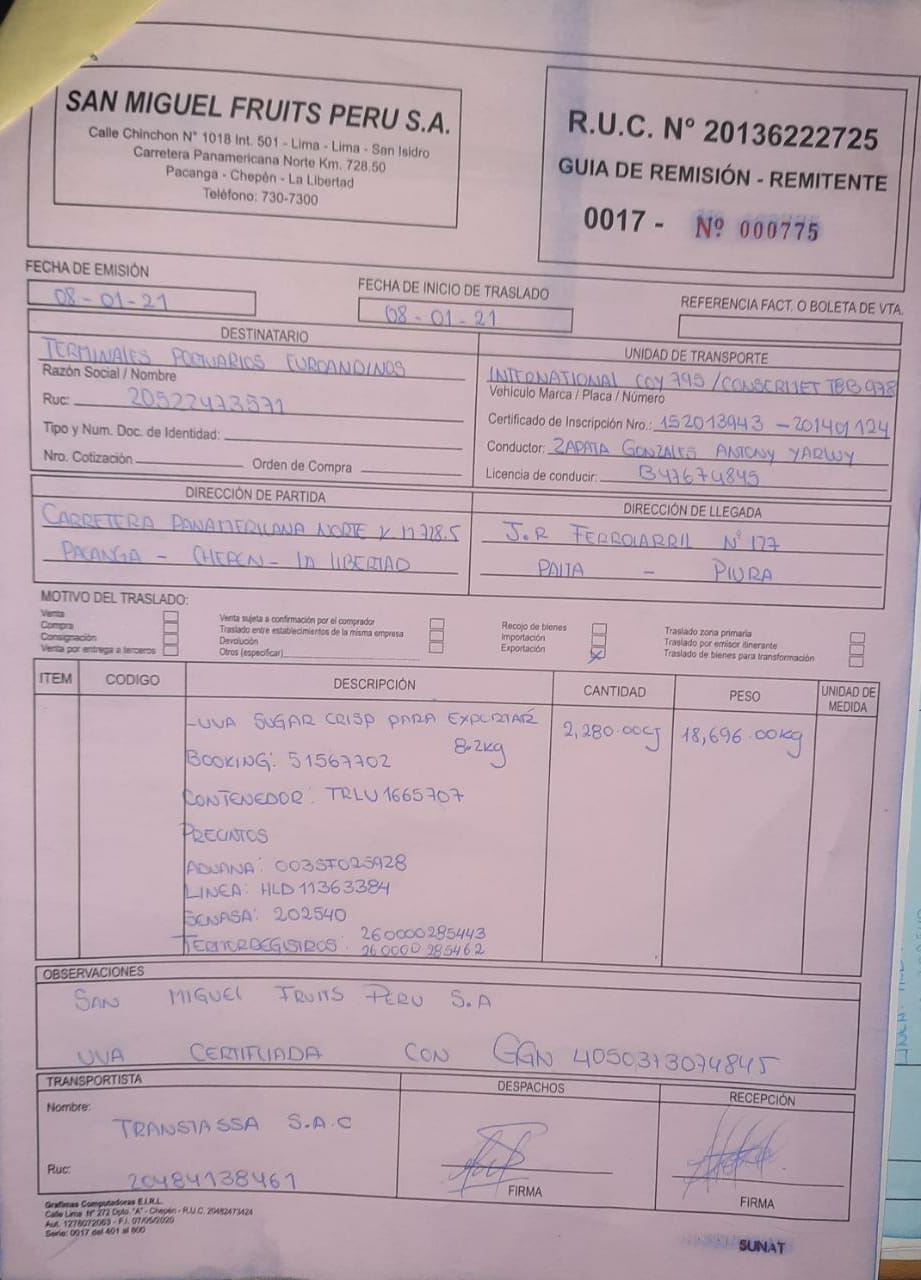 SAN MIGUEL FRUITS PERU S.A.
Calle Chinchon N° 1018 Int. 501 - Lima - Lima - San Isidro
Carretera Panamericana Norte Km. 728.50
Pacanga - Chepén - La Libertad
Teléfono: 730-7300
R.U.C. N° 20136222725
GUIA DE REMISIÓN - REMITENTE
0017 - Nº 000775
FECHA DE EMISIÓN
08-01-21
FECHA DE INICIO DE TRASLADO
08-01-21
REFERENCIA FACT. O BOLETA DE VTA.
DESTINATARIO
TERMINALES PORTUARIOS EUROANDINOS
Razón Social / Nombre
Ruc: 20522473571
Tipo y Num. Doc. de Identidad:
Nro. Cotización
Orden de Compra
UNIDAD DE TRANSPORTE
INTERNATIONAL COY 795 / TBB 978
Vehículo Marca / Placa / Número
Certificado de Inscripción Nro.: 152013943 - 201401124
Conductor: ZAPATA GONZALES ANTONY YARWY
Licencia de conducir: B47674845
DIRECCIÓN DE PARTIDA
CARRETERA PANAMERICANA NORTE K M 728.5
PACANGA - CHEPEN - LA LIBERTAD
DIRECCIÓN DE LLEGADA
J.R FERROCARRIL Nº 127
PAITA - PIURA
MOTIVO DEL TRASLADO:
Venta
Compra
Consignación
Venta por entrega a terceros
Venta sujeta a confirmación por el comprador
Traslado entre establecimientos de la misma empresa
Devolución
Otros (especificar)
Recojo de bienes
Importación
Exportación X
Traslado zona primaria
Traslado por emisor itinerante
Traslado de bienes para transformación
ITEM CODIGO DESCRIPCIÓN CANTIDAD PESO UNIDAD DE MEDIDA
-UVA SUGAR CRISP PARA EXPORTAR 2,280.00CJ 18,696.00kg
8.2kg
BOOKING: 51567702
CONTENEDOR: TRLU1665707
PRECINTOS
ADUANA: 003SF025928
LINEA: HLD11363384
SENASA: 202540
TERMOREGISTROS: 260000285443
260000285462
OBSERVACIONES
SAN MIGUEL FRUITS PERU S.A
UVA CERTIFICADA CON GGN 4050373074845
TRANSPORTISTA
Nombre:
TRANSTASSA S.A.C
Ruc: 20484138461
DESPACHOS
FIRMA
RECEPCIÓN
FIRMA
Graficas Computadoras E.I.R.L.
Calle Lima Nº 272 Dpto. "A" - Chepén - R.U.C. 20482473424
Aut. 1276072063 - F.I. 07/05/2020
Serie: 0017 del 401 al 800
SUNAT